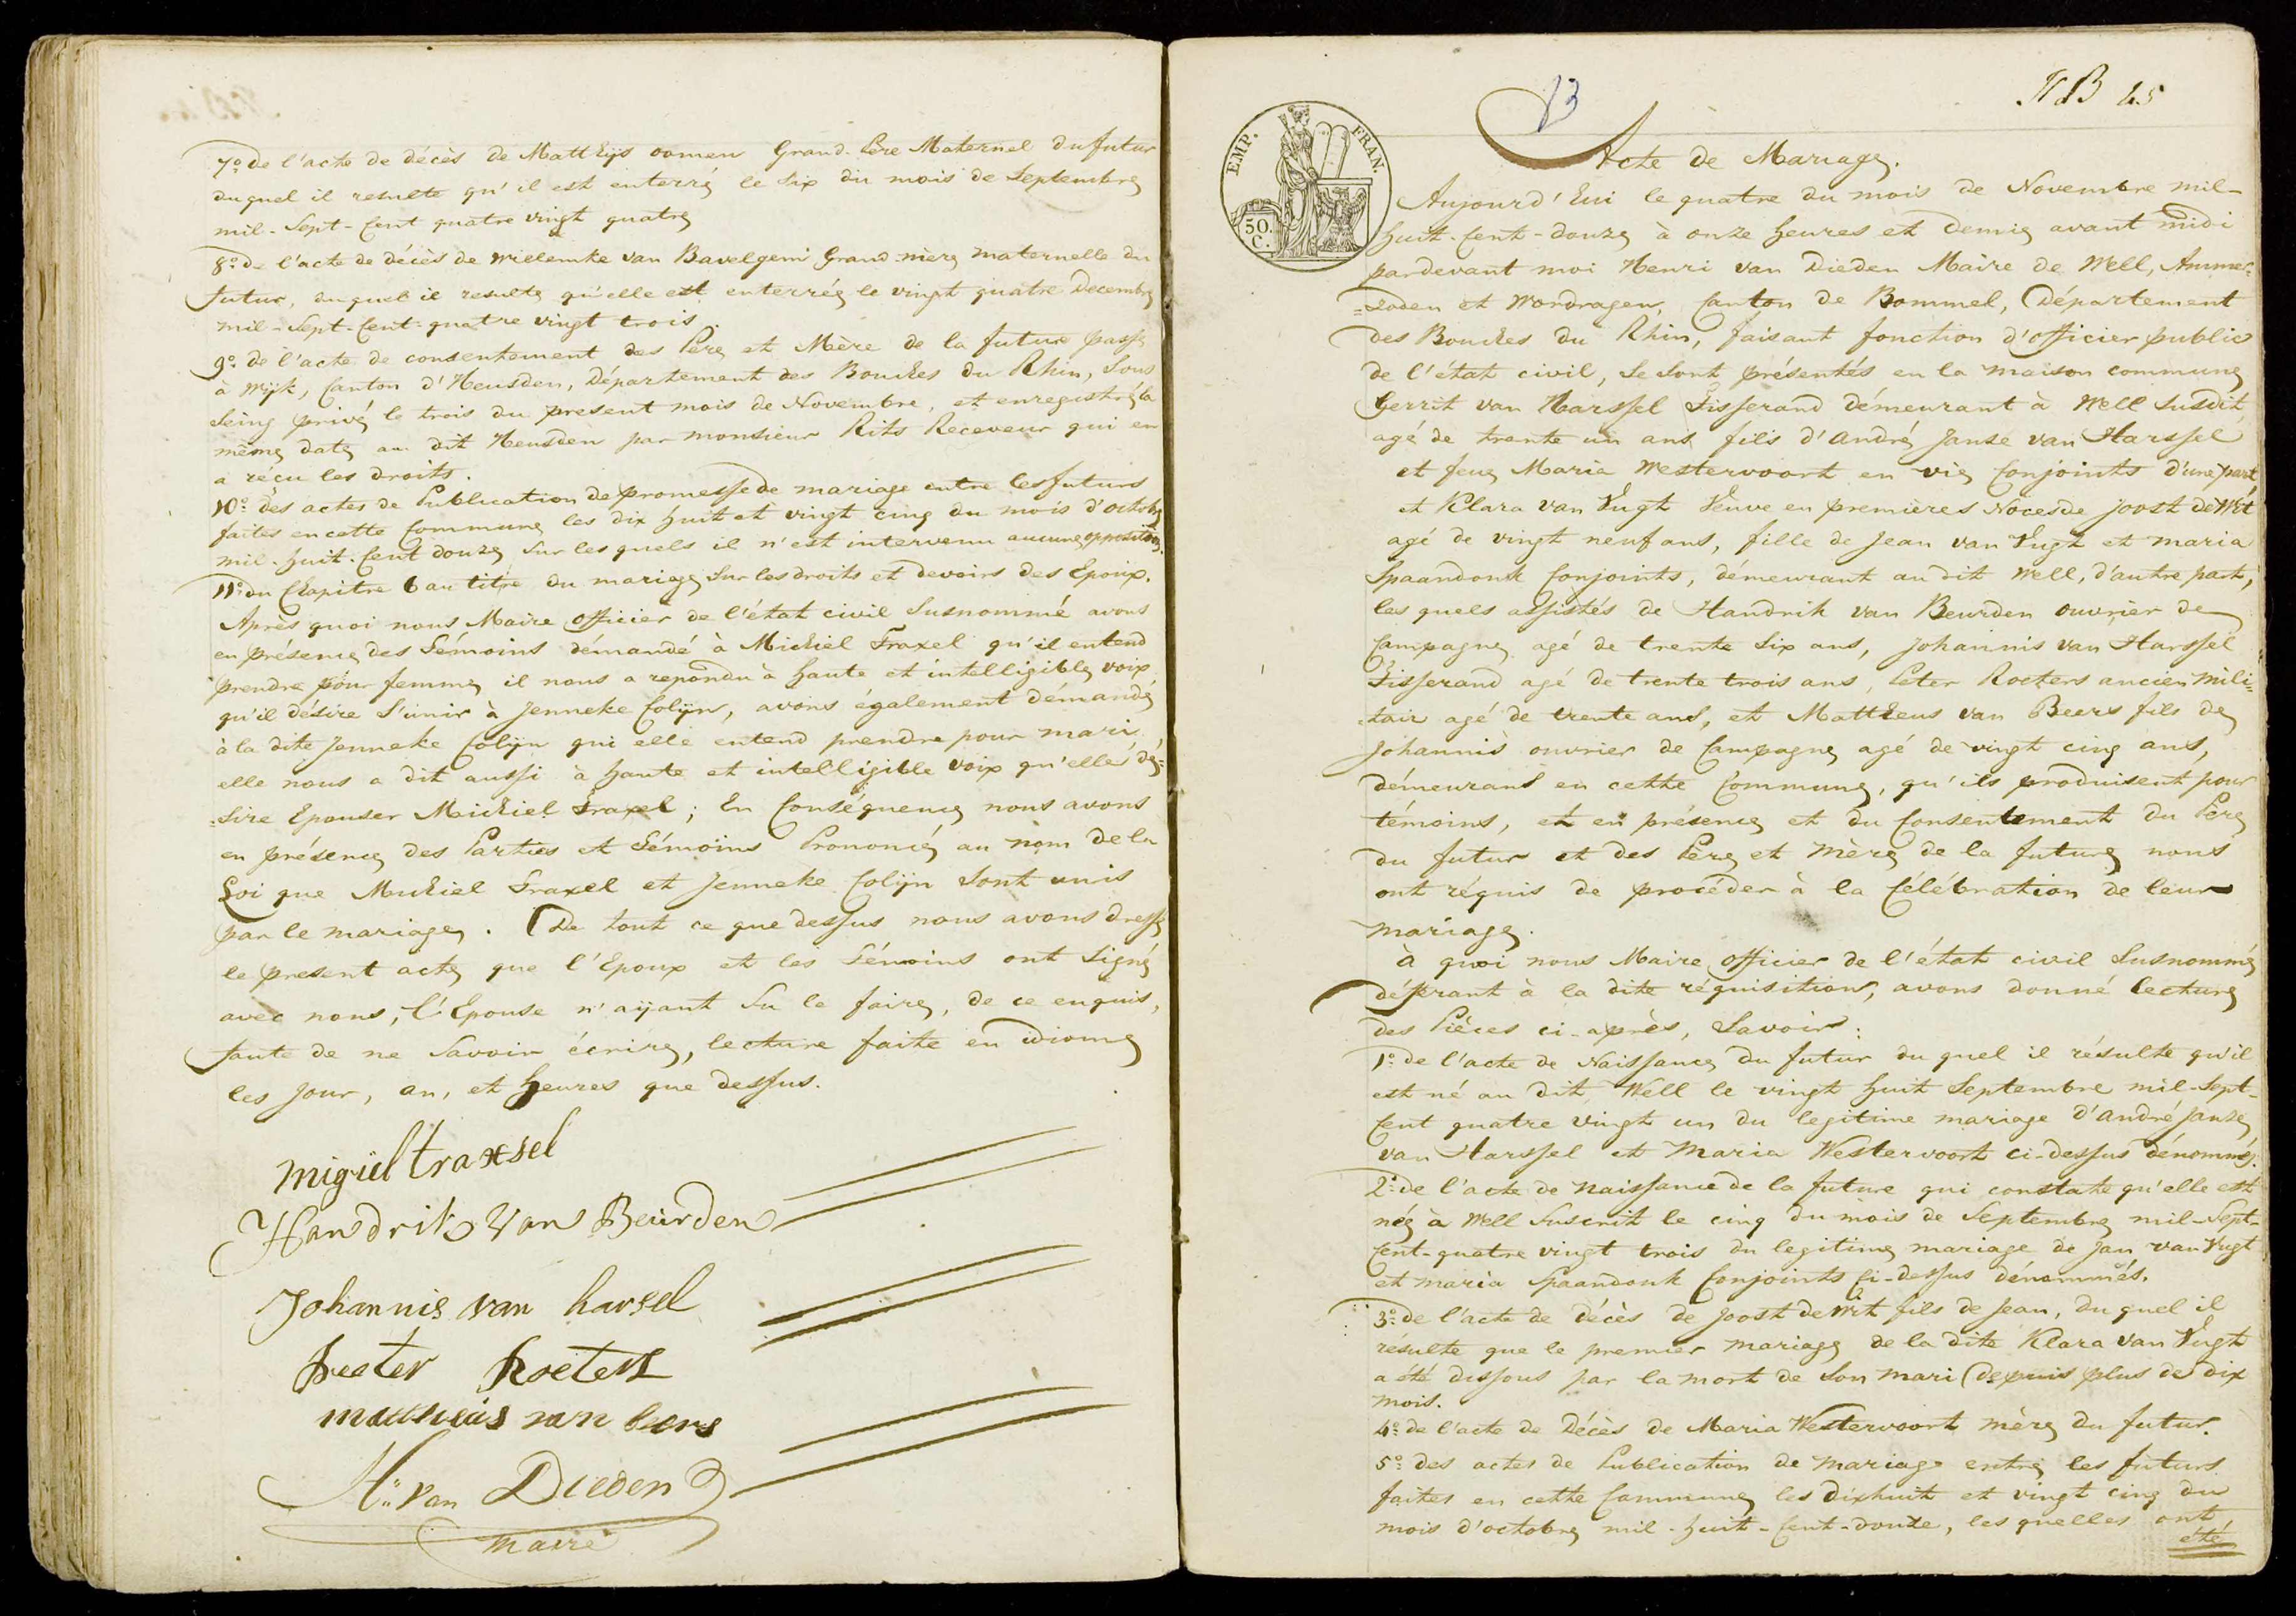 7º de l'acte de décès de Matthijs oomen Grand-Père Maternel du futur
duquel il resulte qu'il est enterré le Six du mois de Septembre
mil-Sept-Cent quatre vingt quatre
8º de l'acte de décès de Wielemke van Bavelgem Grand-mère maternelle du
futur, duquel il resulte qu'elle est enterrée le vingt quatre Decembre
mil-Sept-Cent-quatre vingt trois.
9º de l'acte de consentement des Père et Mère de la future passé
à Wijk, Canton d'Heusden, Département des Bouches du Rhin, Sous
Seing privé le trois du present mois de Novembre, et enregistré la
même date au dit Heusden par monsieur Rits Receveur qui en
a réçu les droits.
10º des actes de Publication de promesse de mariage entre les futurs
faites en cette Commune les dix huit et vingt cinq du mois d'octobre
mil-huit-Cent douze Sur les quels il n'est intervenu aucune opposition.
11º du Chapitre 6 au titre du mariage Sur les droits et devoirs des Epoux.
Après quoi nous Maire officier de l'état civil Susnommé avons
en présence des Témoins démandé à Michiel Traxel qu'il entend
prendre pour femme il nous a repondu à haute et intelligible voix
qu'il désire S'unir à Jenneke Colijn, avons également démandé
à la dite Jenneke Colijn qui elle entend prendre pour mari
elle nous a dit aussi à haute et intelligible voix qu'elle dé=
=sire Epouser Michiel Traxel; En Conséquence nous avons
en présence des Parties et Témoins Prononcé au nom de la
Loi que Michiel Traxel et Jenneke Colijn Sont unis
par le mariage. De tout ce que dessus nous avons dressé
le present acte que l'Epoux et les Témoins ont Signé
avec nous, l'Epouse n'aijant Su le faire, de ce enquis,
faute de ne Savoir écrire, lecture faite en idiome
les Jour, an, et heures que dessus.
migiel traxsel
Handrik Van Beurden
Johannis van harsel
Peeter Roeters
mattheus van beers
H: van Dieden
maire
13
N B 45
EMP. FRAN.
50.
C.
Acte de Mariage.
Aujourd'hui le quatre du mois de Novembre mil-
huit-Cent-douze à onze heures et demie avant midi
pardevant moi Henri van Dieden Maire de Well, Ammer=
=zoden et Wordragen, Canton de Bommel, Département
des Bouches du Rhin, faisant fonction d'officier public
de l'état civil, Se Sont présentés en la maison commune
Gerrit van Harssel Tisserand démeurant à Well Susdit,
agé de trente un ans fils d'André Janse van Harssel
et feue Maria Westervoort en vie Conjoints d'une part,
et Klara van Vugt Veuve en premières Noces de Joost de Wit
agé de vingt neuf ans, fille de Jean van Vugt et maria
Spaandonk Conjoints, démeurant au dit Well, d'autre part,
les quels assistés de Handrik van Beurden ouvrier de
Campagne agé de trente Six ans, Johannis van Harssel
Tisserand agé de trente trois ans, Peter Roeters ancien mili=
=tair agé de trente ans, et Mattheus van Beers fils de
Johannis ouvrier de Campagne agé de vingt cinq ans,
démeurans en cette Commune, qu'ils produisent pour
témoins, et en présence et du Consentement du Père
du futur et des Père et mère de la future nous
ont réquis de procéder à la Célébration de leur
mariage.
à quoi nous Maire officier de l'état civil Susnommé
déférant à la dite réquisition, avons donné lecture
des Pièces ci-après, Savoir:
1º de l'acte de Naissance du futur du quel il résulte qu'il
est né au dit Well le vingt huit Septembre mil-Sept-
Cent quatre vingt un du legitime mariage d'André Janse
van Harssel et Maria Westervoort ci-dessus dénommés.
2º de l'acte de naissance de la future qui constate qu'elle est
née à Well Suscrit le cinq du mois de Septembre mil-Sept-
Cent-quatre vingt trois du legitime mariage de Jan van Vugt
et maria Spaandonk Conjoints Ci-dessus dénommés.
3º de l'acte de décès de Joost de Wit fils de Jean, du quel il
résulte que le premier mariage de la dite Klara van Vugt
a été dissous par la mort de Son mari depuis plus de dix
mois.
4º de l'acte de Décès de Maria Westervoort mère du futur.
5º des actes de Publication de mariage entre les futurs
faites en cette Commune les dixhuit et vingt cinq du
mois d'octobre mil-huit-Cent-douze, les quelles ont
été